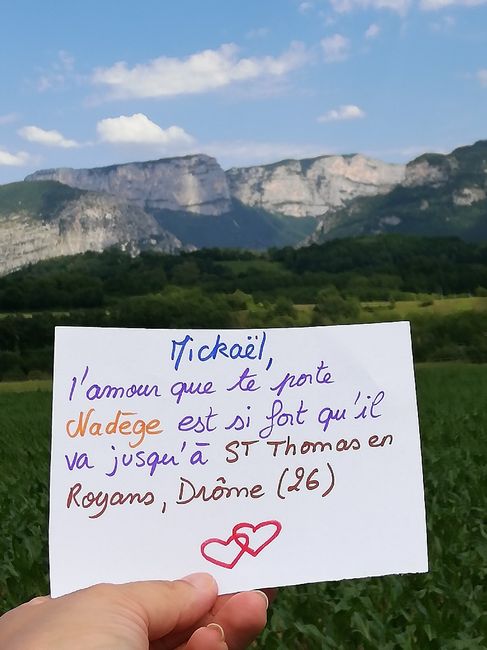 Mickaël,
l'amour que te porte
Nadège est si fort qu'il
va jusqu'à ST Thomas en
Royans, Drôme (26)